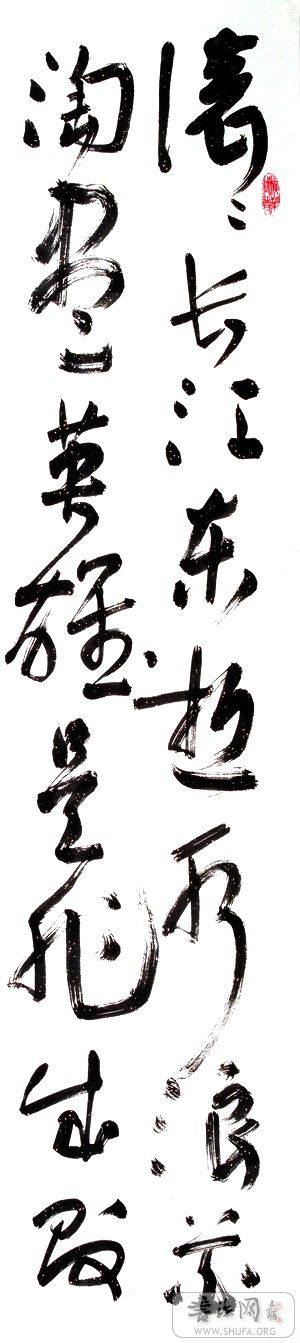 滚〻长江东逝水浪花
淘尽英雄是非成败
書法网
WWW.SHUFA.ORG